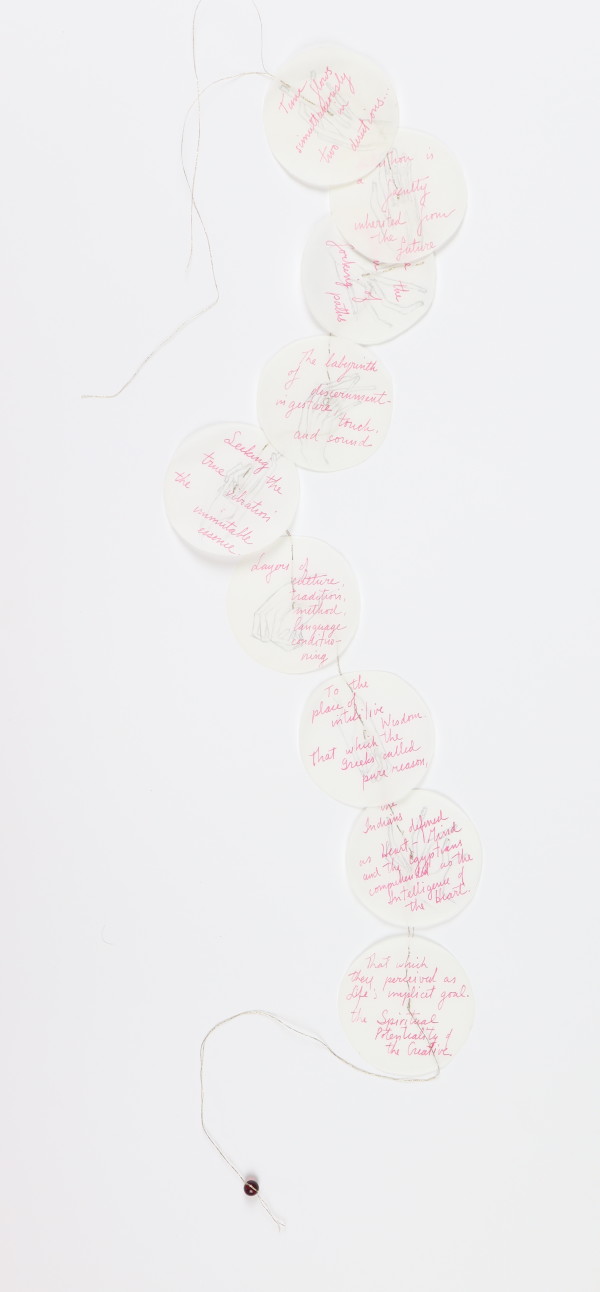 Time flows
simultaneously
in
two directions...
is
faculty
inherited from
the future
forking of the
paths
The labyrinth
of discernment-
in gesture touch,
and sound
Seeking the
true vibration
the immutable
essence
Layers of
culture,
tradition,
method,
language
conditio-
ning
To the
place of
intuitive
Wisdom
that which the
Greeks called
pure reason,
the
Indians defined
as Heart-Mind
and the Egyptians
comprehended as the
Intelligence of
the heart.
That which
they perceived as
Life's implicit goal.
the Spiritual
Potentiality of
the Creative